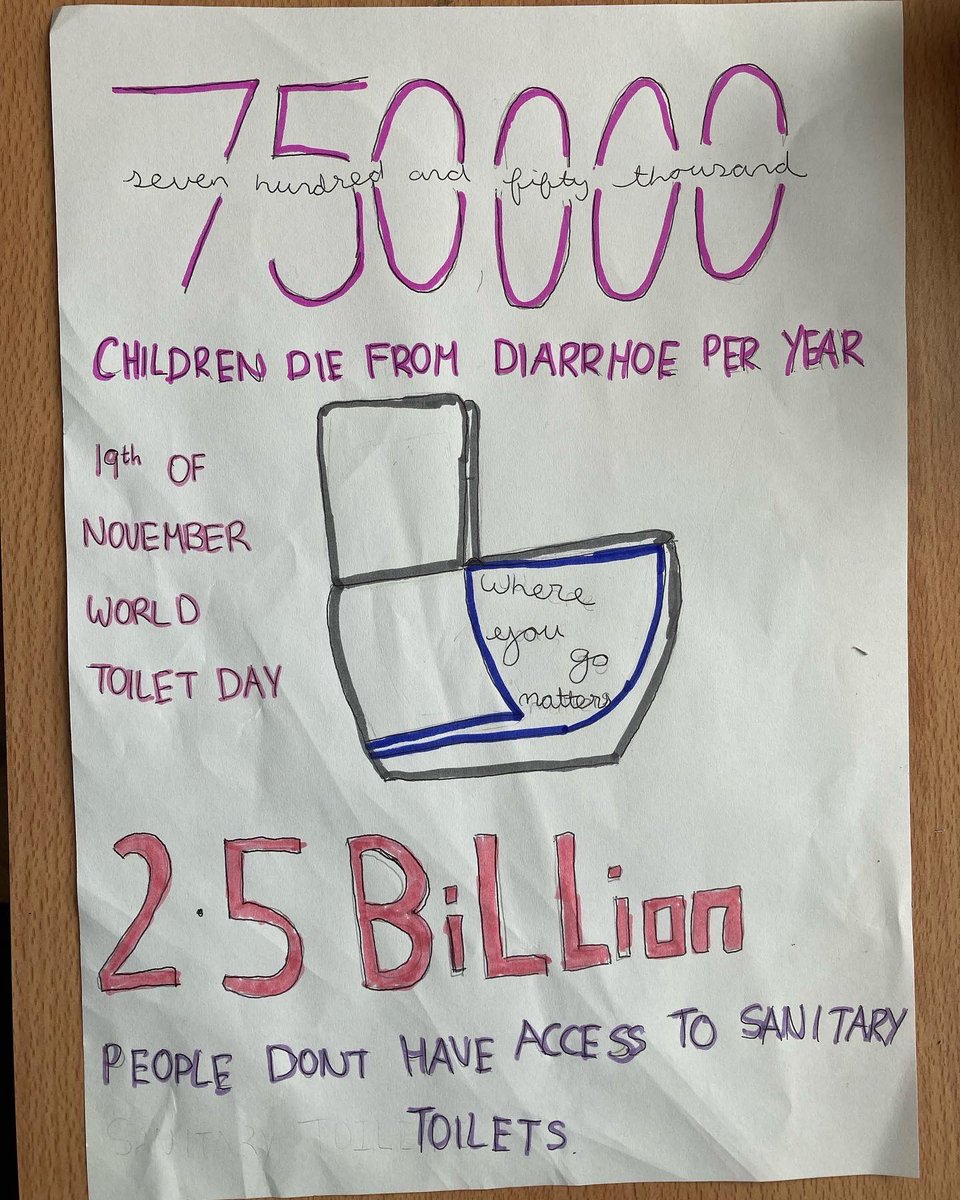 750000
seven hundred and fifty thousand
CHILDREN DIE FROM DIARRHOE PER YEAR
19th OF
NOVEMBER
WORLD
TOILET DAY
where
you
go
matters
2.5 BiLLion
PEOPLE DONT HAVE ACCESS TO SANITARY
TOILETS.